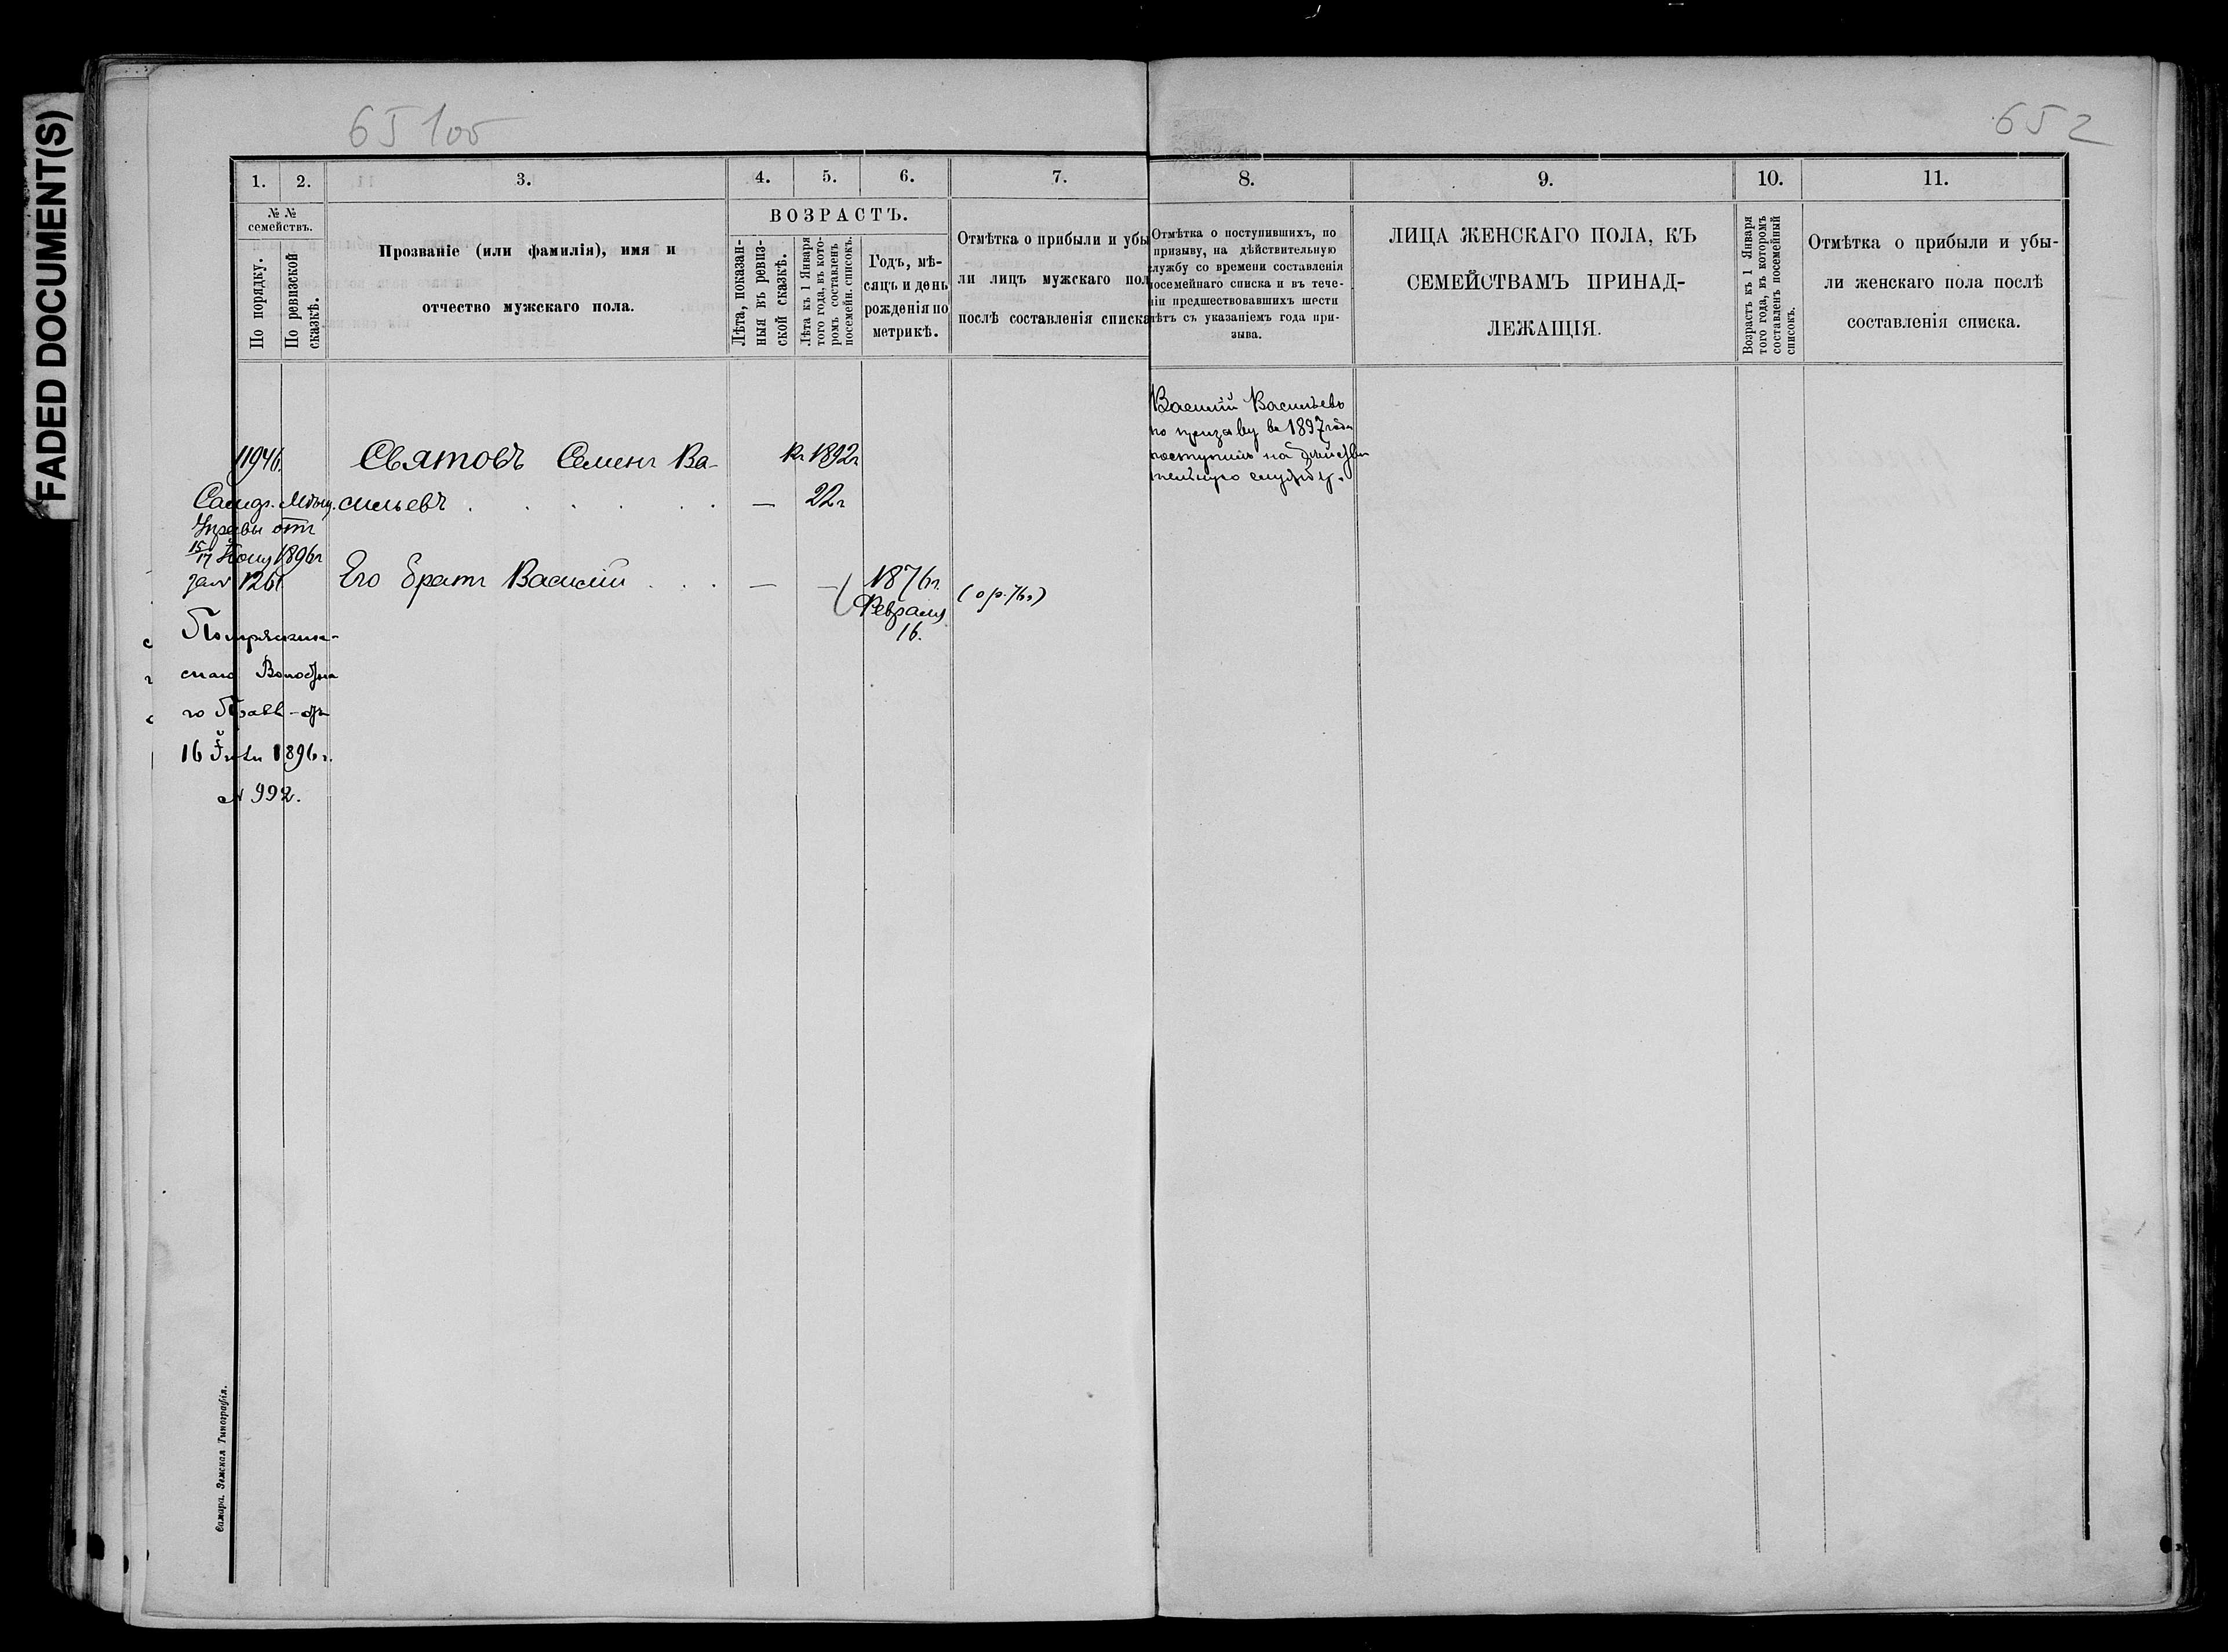 FADED DOCUMENT(S)
65 100
652
1.
2.
3.
4.
5.
6.
7.
8.
9.
10.
11.
№ №
семействъ.
По порядку.
По ревизской
сказкѣ.
Прозваніе (или фамилія), имя и
отчество мужскаго пола.
ВОЗРАСТЪ.
Лѣта, показан-
ныя въ ревиз-
ской сказкѣ.
Лѣта къ 1 Января
того года, въ кото-
ромъ составленъ
посемейн. списокъ.
Годъ, мѣ-
сяцъ и день
рожденія по
метрикѣ.
Отмѣтка о прибыли и убы
ли лицъ мужскаго пол
послѣ составленія списка
Отмѣтка о поступившихъ, по
призыву, на дѣйствительную
службу со времени составленія
посемейнаго списка и въ тече-
ніи предшествовавшихъ шести
лѣтъ съ указаніемъ года при-
зыва.
ЛИЦА ЖЕНСКАГО ПОЛА, КЪ
СЕМЕЙСТВАМЪ ПРИНАД-
ЛЕЖАЩІЯ.
Возрастъ къ 1 Января
того года, въ которомъ
составленъ посемейный
списокъ.
Отмѣтка о прибыли и убы-
ли женскаго пола послѣ
составленія списка.
11946.
Святовъ Семенъ Ва-
къ 1892г
сильевъ . . . . . . — 22г
Управы отъ
15/17 1896г
за № 1261
Его братъ Василій . . . — —
1876г.
Февраля
16.
(о р. 76г)
16 1896г.
№ 992.
Василій Васильевъ
по призыву въ 1897 года
поступилъ на дѣйстви
тельную службу.
Самара. Земская Типографія.